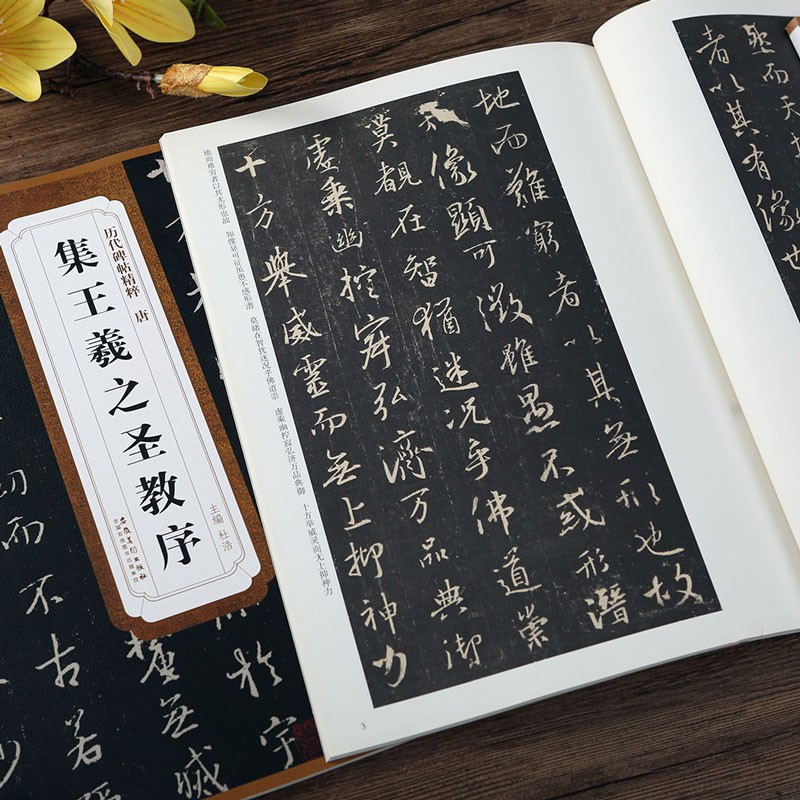 历代碑帖精粹 唐
集王羲之圣教序
主编 杜浩
安徽美术出版社
全国百佳图书出版单位
而天
者以其有像也
地而難窮者以其無形也故
知像顯可徵雖愚不惑形潛
莫覩在智猶迷况乎佛道崇
虛乘幽控寂弘濟万品典御
十方舉威靈而無上抑神力
地而难穷者以其无形也故 知像显可征虽愚不惑形潜 莫睹在智犹迷况乎佛道崇 虚乘幽控寂弘济万品典御 十方举威灵而无上抑神力
3
於宇
無滅
而不古若